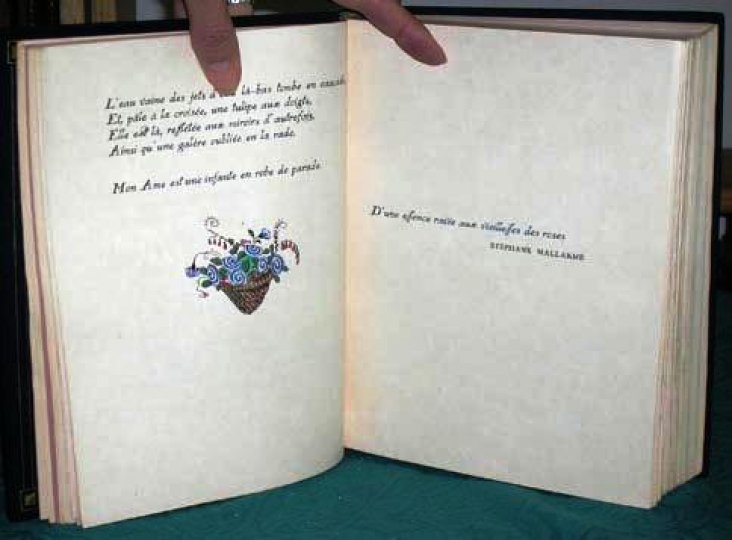 L'eau vaine des jets d' là-bas tombe en
Et, pâle à la croisée, une tulipe aux doigts,
Elle est là, reflétée aux miroirs d'autrefois,
Ainsi qu'une galère oubliée en la rade.
Mon Ame est une infante en robe de parade
D'une essence ravie aux vieillesses des roses
STÉPHANE MALLARMÉ